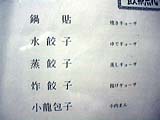 鍋貼 焼きギョーザ
水餃子 ゆでギョーザ
蒸餃子 蒸しギョーザ
炸餃子 揚げギョーザ
小龍包子 小肉まん